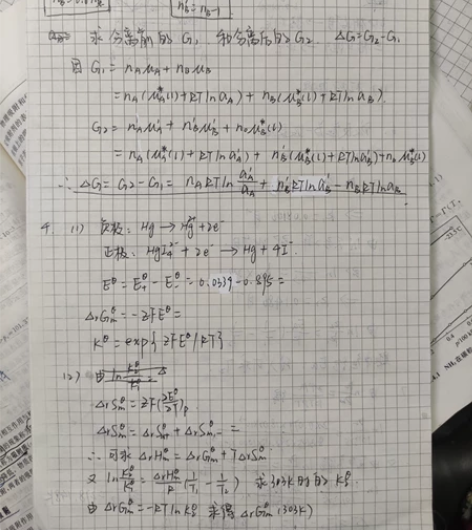 n_B' = n_B - 1
求分离前的 G₁ 和分离后的 G₂ ΔG=G₂-G₁
因 G₁ = n_Aμ_A + n_Bμ_B
= n_A(μ_A*(l)+RTlna_A) + n_B(μ_B*(l)+RTlna_B)
G₂ = n_Aμ_A' + n_B'μ_B' + n_Bμ_B*(l)
= n_A(μ_A*(l)+RTlna_A') + n_B'(μ_B*(l)+RTlna_B')+n_Bμ_B*(l)
∴ ΔG = G₂-G₁ = n_ARTln a_A'/a_A + n_B'RTlna_B' - n_BRTlna_B
4. (1) 负极: Hg → Hg²⁺+2e⁻
正极: HgI₄²⁻ + 2e⁻ → Hg + 4I⁻
E^θ = E₊^θ - E₋^θ = 0.0339-0.895 =
ΔrGm^θ = -zFE^θ =
K^θ = exp{zFE^θ/RT}
(2) 由 ln K₂^θ/K₁^θ =
ΔrSm^θ = zF(∂E^θ/∂T)p
∴ 可求 ΔrHm^θ = ΔrGm^θ + TΔrSm^θ
又 ln K₂^θ/K₁^θ = ΔrHm^θ/R (1/T₁ - 1/T₂) 求303K时的 K₂^θ
由 ΔrGm^θ = -RTlnK₂^θ 求得 ΔrGm^θ(303K)